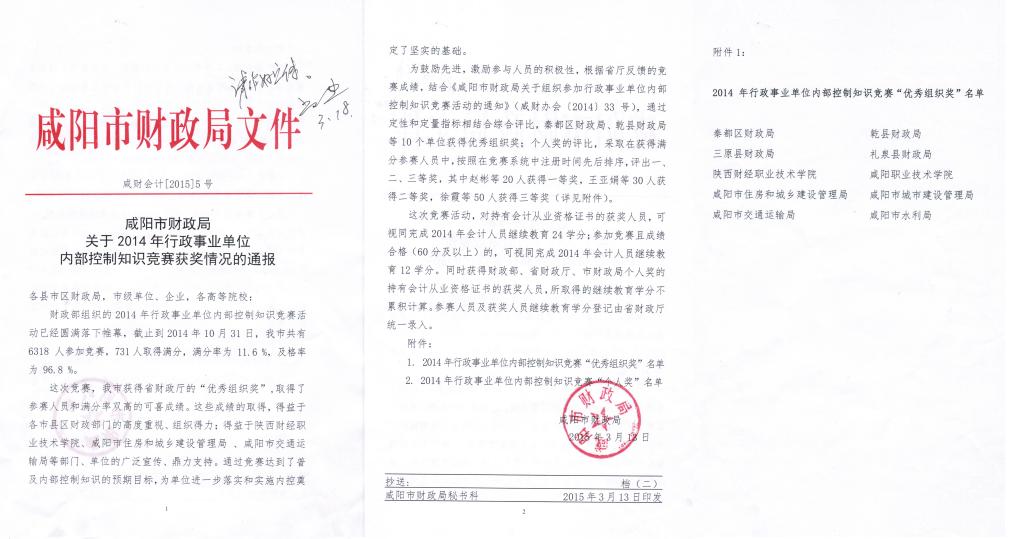 咸阳市财政局文件
3.18.
咸财会计[2015]5号
咸阳市财政局
关于 2014 年行政事业单位
内部控制知识竞赛获奖情况的通报
各县市区财政局，市级单位、企业，各高等院校：
财政部组织的 2014 年行政事业单位内部控制知识竞赛活
动已经圆满落下帷幕，截止到 2014 年 10 月 31 日，我市共有
6318 人参加竞赛，731 人取得满分，满分率为 11.6 %，及格率
为 96.8 %。
这次竞赛，我市获得省财政厅的“优秀组织奖”，取得了
参赛人员和满分率双高的可喜成绩。这些成绩的取得，得益于
各市县区财政部门的高度重视、组织得力；得益于陕西财经职
业技术学院、咸阳市住房和城乡建设管理局 、咸阳市交通运
输局等部门、单位的广泛宣传、鼎力支持。通过竞赛达到了普
及内部控制知识的预期目标，为单位进一步落实和实施内控奠
1
定了坚实的基础。
为鼓励先进，激励参与人员的积极性，根据省厅反馈的竞
赛成绩，结合《咸阳市财政局关于组织参加行政事业单位内部
控制知识竞赛活动的通知》（咸财办会〔2014〕33 号），通过
定性和定量指标相结合综合评比，秦都区财政局、乾县财政局
等 10 个单位获得优秀组织奖；个人奖的评比，采取在获得满
分参赛人员中，按照在竞赛系统中注册时间先后排序，评出一、
二、三等奖，其中赵彬等 20 人获得一等奖，王亚娟等 30 人获
得二等奖，徐霞等 50 人获得三等奖（详见附件）。
这次竞赛活动，对持有会计从业资格证书的获奖人员，可
视同完成 2014 年会计人员继续教育 24 学分；参加竞赛且成绩
合格（60 分及以上）的，可视同完成 2014 年会计人员继续教
育 12 学分。同时获得财政部、省财政厅、市财政局个人奖的
持有会计从业资格证书的获奖人员，所取得的继续教育学分不
累积计算。参赛人员及获奖人员继续教育学分登记由省财政厅
统一录入。
附件：
1. 2014年行政事业单位内部控制知识竞赛“优秀组织奖”名单
2. 2014年行政事业单位内部控制知识竞赛“个人奖”名单
咸阳市财政局
2015 年 3 月 13 日
抄送： 档（二）
咸阳市财政局秘书科 2015 年 3 月 13 日印发
2
附件 1：
2014 年行政事业单位内部控制知识竞赛“优秀组织奖”名单
秦都区财政局 乾县财政局
三原县财政局 礼泉县财政局
陕西财经职业技术学院 咸阳职业技术学院
咸阳市住房和城乡建设管理局 咸阳市城市建设管理局
咸阳市交通运输局 咸阳市水利局